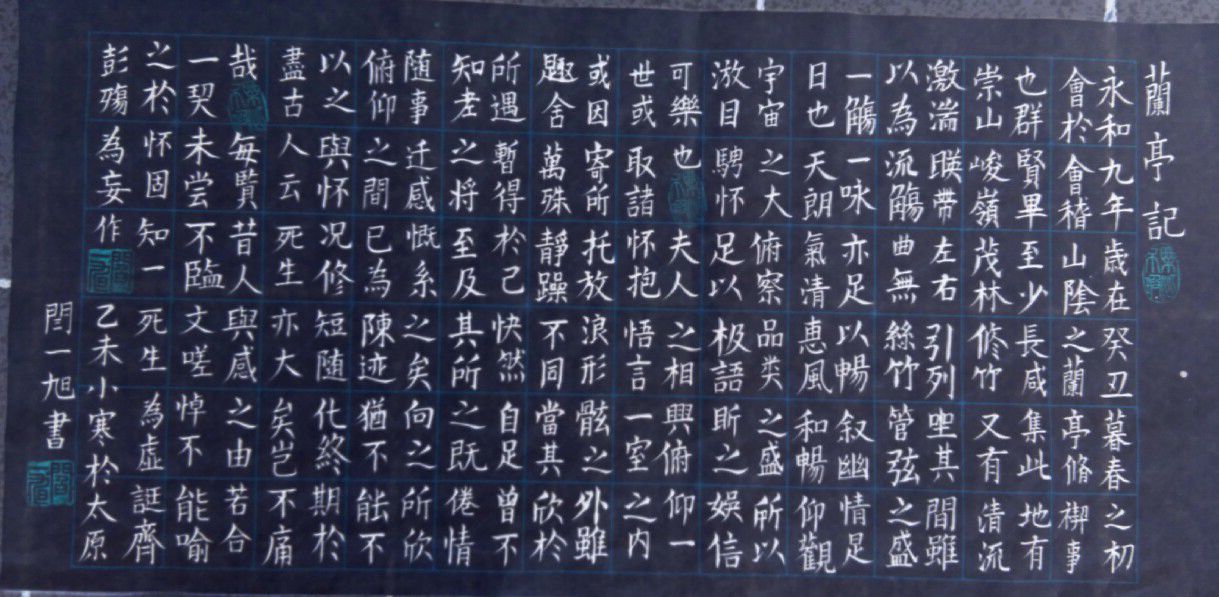 蘭亭記
永和九年歲在癸丑暮春之初
會於會稽山陰之蘭亭脩禊事
也群賢畢至少長咸集此地有
崇山峻嶺茂林修竹又有清流
激湍暎帶左右引列坐其間雖
以為流觴曲無絲竹管弦之盛
一觴一咏亦足以暢叙幽情足
日也天朗氣清惠風和暢仰觀
宇宙之大俯察品类之盛所以
遊目騁怀足以极語之娛信
可樂也夫人之相興俯仰一
世或取諸怀抱悟言一室之内
或因寄所托放浪形骸之外雖
趣舍萬殊靜躁不同當其欣於
所遇暫得於己快然自足曾不
知老之将至及其所之既倦情
随事迁感慨系之矣向之所欣
俯仰之間已為陳迹猶不能不
以之與怀况修短随化終期於
盡古人云死生亦大矣岂不痛
哉每覽昔人與感之由若合
一契未尝不臨文嗟悼不能喻
之於怀固知一死生為虛誕齊
彭殤為妄作乙未小寒於太原
閆一旭書